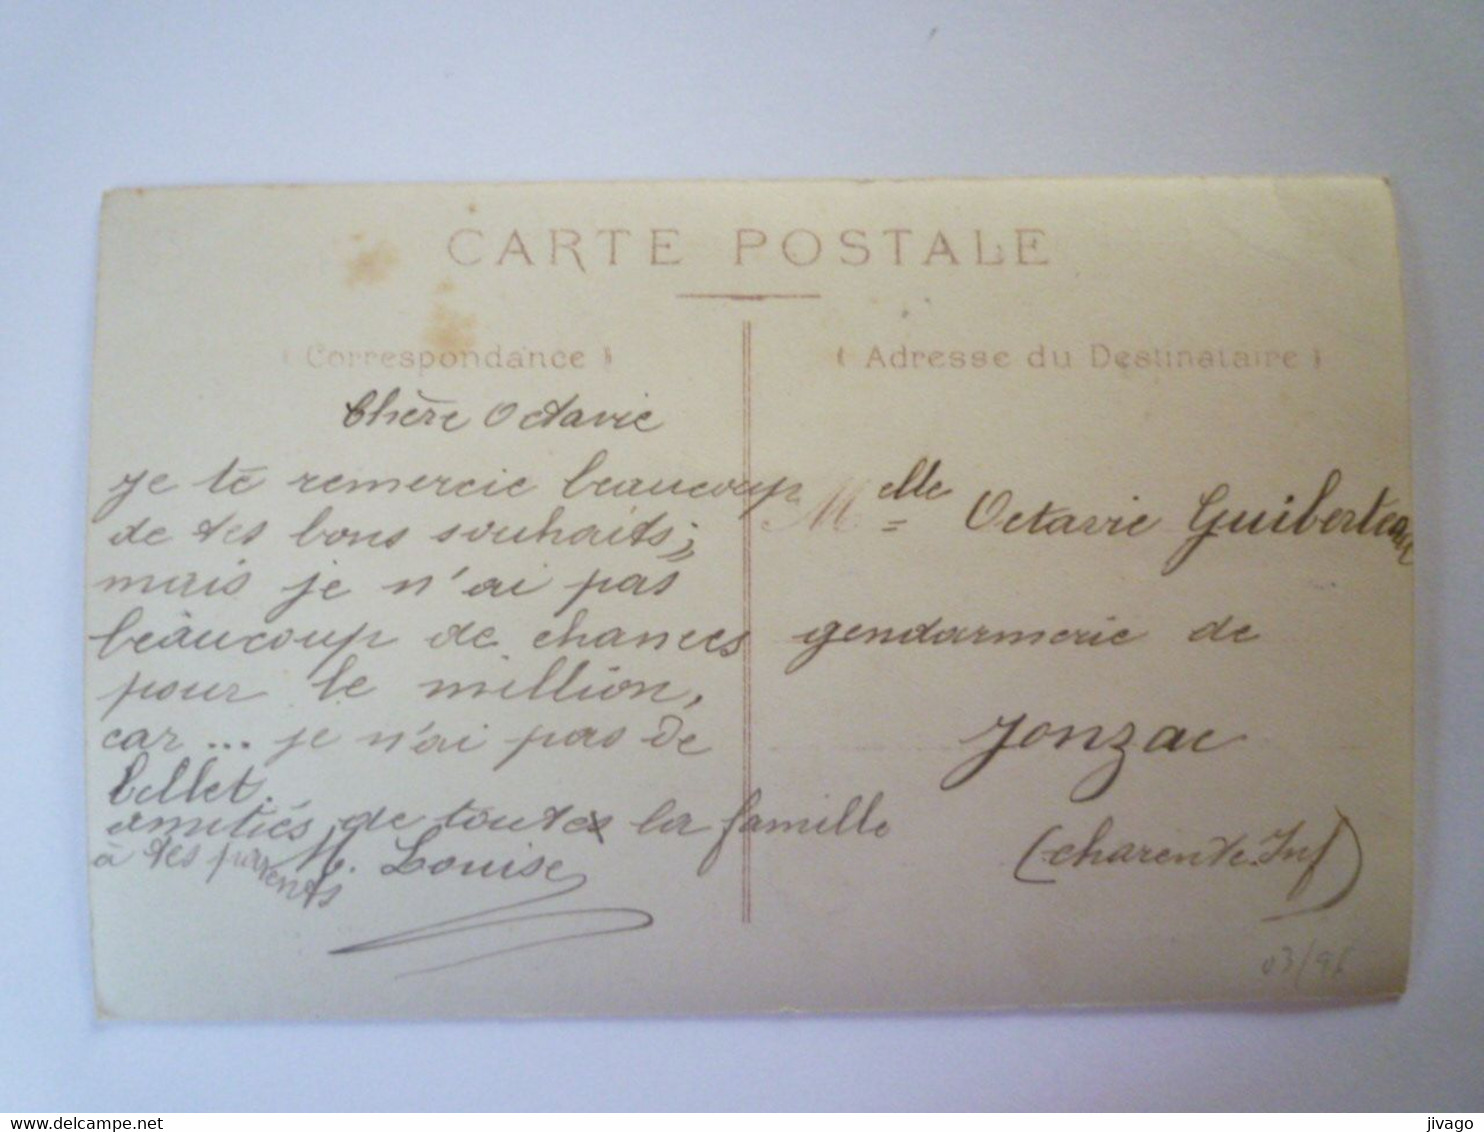 CARTE POSTALE
( Correspondance )
Chère Octavie
je te remercie beaucoup
de tes bons souhaits;
mais je n'ai pas
beaucoup de chances
pour le million,
car... je n'ai pas de
billet.
amitiés de toute la famille
à tes parents
M. Louise
( Adresse du Destinataire )
Melle Octavie Guiberteau
gendarmerie de
Jonzac
(Charente.Inf)
03/98
www.delcampe.net
jivago